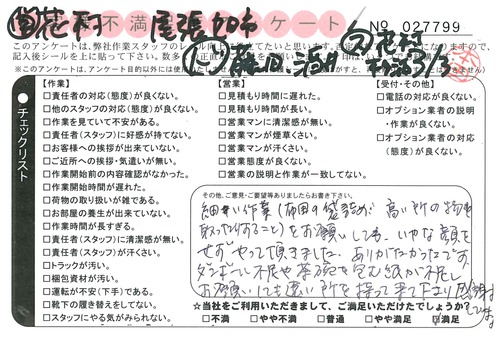 花村 尾張旭市
不満 ケート
No 027799
このアンケートは、弊社作業スタッフのレベル向上に
記入後シールを上に貼って下さい。
※このアンケートは、アンケート目的以外には使用
チェックリスト
【作業】
□責任者の対応(態度)が良くない。
□他のスタッフの対応(態度)が良くない。
□作業を見ていて不安がある。
□責任者(スタッフ)に好感が持てない。
□お客様への挨拶が出来ていない。
□ご近所への挨拶・気遣いが無い。
□作業開始前の内容確認がなかった。
□作業開始時間が遅れた。
□荷物の取り扱いが雑である。
□お部屋の養生が出来ていない。
□作業時間が長すぎる。
□責任者(スタッフ)に清潔感が無い。
□責任者(スタッフ)が汗くさい。
□トラックが汚い。
□梱包資材が汚い。
□運転が不安(下手)である。
□靴下の履き替えをしてない。
□スタッフにやる気がみられない。
【営業】
□見積もり時間が遅れた。
□見積もり時間に長い。
□営業マンに清潔感が無い。
□営業マンが煙草くさい。
□営業マンが汗くさい。
□営業態度が良くない。
□営業の説明と作業が一致してない。
【受付・その他】
□電話の対応が良くない。
□オプション業者の説明
・作業が良くない。
□オプション業者の対応
(態度)が良くない。
その他、ご意見・ご要望等ありましたらお書き下さい。
細かい作業(布団の袋詰めが 高い所の物を
取ったりすること)をお願いしても、いやな顔を
せずやって頂きました。ありがたかったです。
ダンボール不足や茶碗を包む紙が不足し
お願いしても速い所を採って来て下さり感謝し
★当社をご利用いただきまして、ご満足いただけたでしょうか?
□不満 □やや不満 □普通 □やや満足 □満足